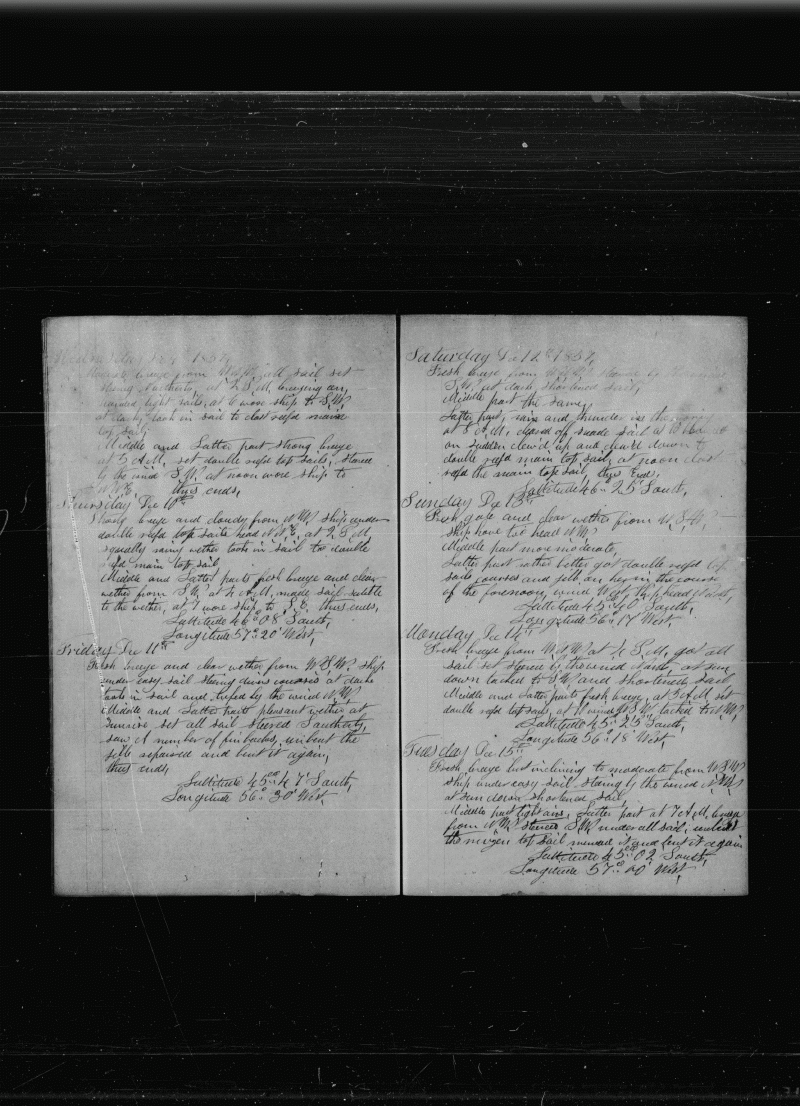 1857,
breeze from all sail set
at 2 P.M. 
light sails, at 6 wore ship to S.W.
at dark, took in sail to close reefd main
top sail
Middle and Latter part strong breeze
at 5 A.M, set double reefd top sails, steered
by the wind S.W. at noon wore ship to
thus ends,
Thursday Dec 10th
Strong breeze and cloudy from N.W. ship under
double reefd top sails head at 2 P.M,
squally rainy wether took in sail to double
refd main top sail
Middle and Latter parts fresh breeze and clear
wether from S.W. at 4 A.M, made sail sutible
to the wether, at 7 wore ship to S.E. thus ends,
Lattitude 46° 08 South,
Longitude 57° 20' West,
Friday Dec 11th
Fresh breeze and clear wether from W.S.W. ship
under easy sail steering divers courses at dark
took in sail and by the wind N.W.
Middle and Latter parts pleasant wether at
sunrise set all sail steered Southerly,
saw A number of finbacks, unbent the
repaired and bent it again,
thus ends,
Lattitude 45° 47' South,
Longitude 56° 30' West,
Saturday Dec 12th 1857,
Fresh breeze from
S.W. at dark shortened sail,
Middle part the same,
Latter part, rain and thunder in the
at 8 A.M. cleared off made sail at
on sudden clew'd up and down to
double refd main top sail, at noon close
refd the main top sail, thus Ends,
Lattitude 46° 25' South,
Sunday Dec 13th
Fresh gale and clear wether from W.S.W.
ship hove too head
Middle part more moderate,
Latter part wether better got double reefd top
sails courses and jibb on her in the course
of the forenoon, wind ship head
Lattitude 45° 40 South,
Longitude 56° 17 West,
Monday Dec 14th
Fresh breeze from at 4 P.M. got all
sail set steered by the wind at sun
down tacked to S.W and shortened sail
Middle and Latter parts fresh breeze, at 3 A.M set
double refd top sails, at 11 wind W.S.W. tacked to N.W.
Lattitude 45° 25' South,
Longitude 56° 18' West,
Tuesday Dec 15th
Fresh breeze but inclining to moderate from W.S.W.
ship under easy sail, steering by the wind N.W.
at sun down shortened sail,
Middle part light airs, Latter part at 7 A.M, breeze
from N.W. steered S.W. under all sail, unbent
the mizen top sail mended it and bent it again
Lattitude 45° 02 South,
Longitude 57° 00' West,